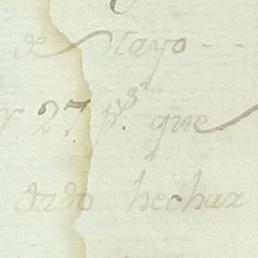 de Mayo
y 27 p.s que
dado hechar